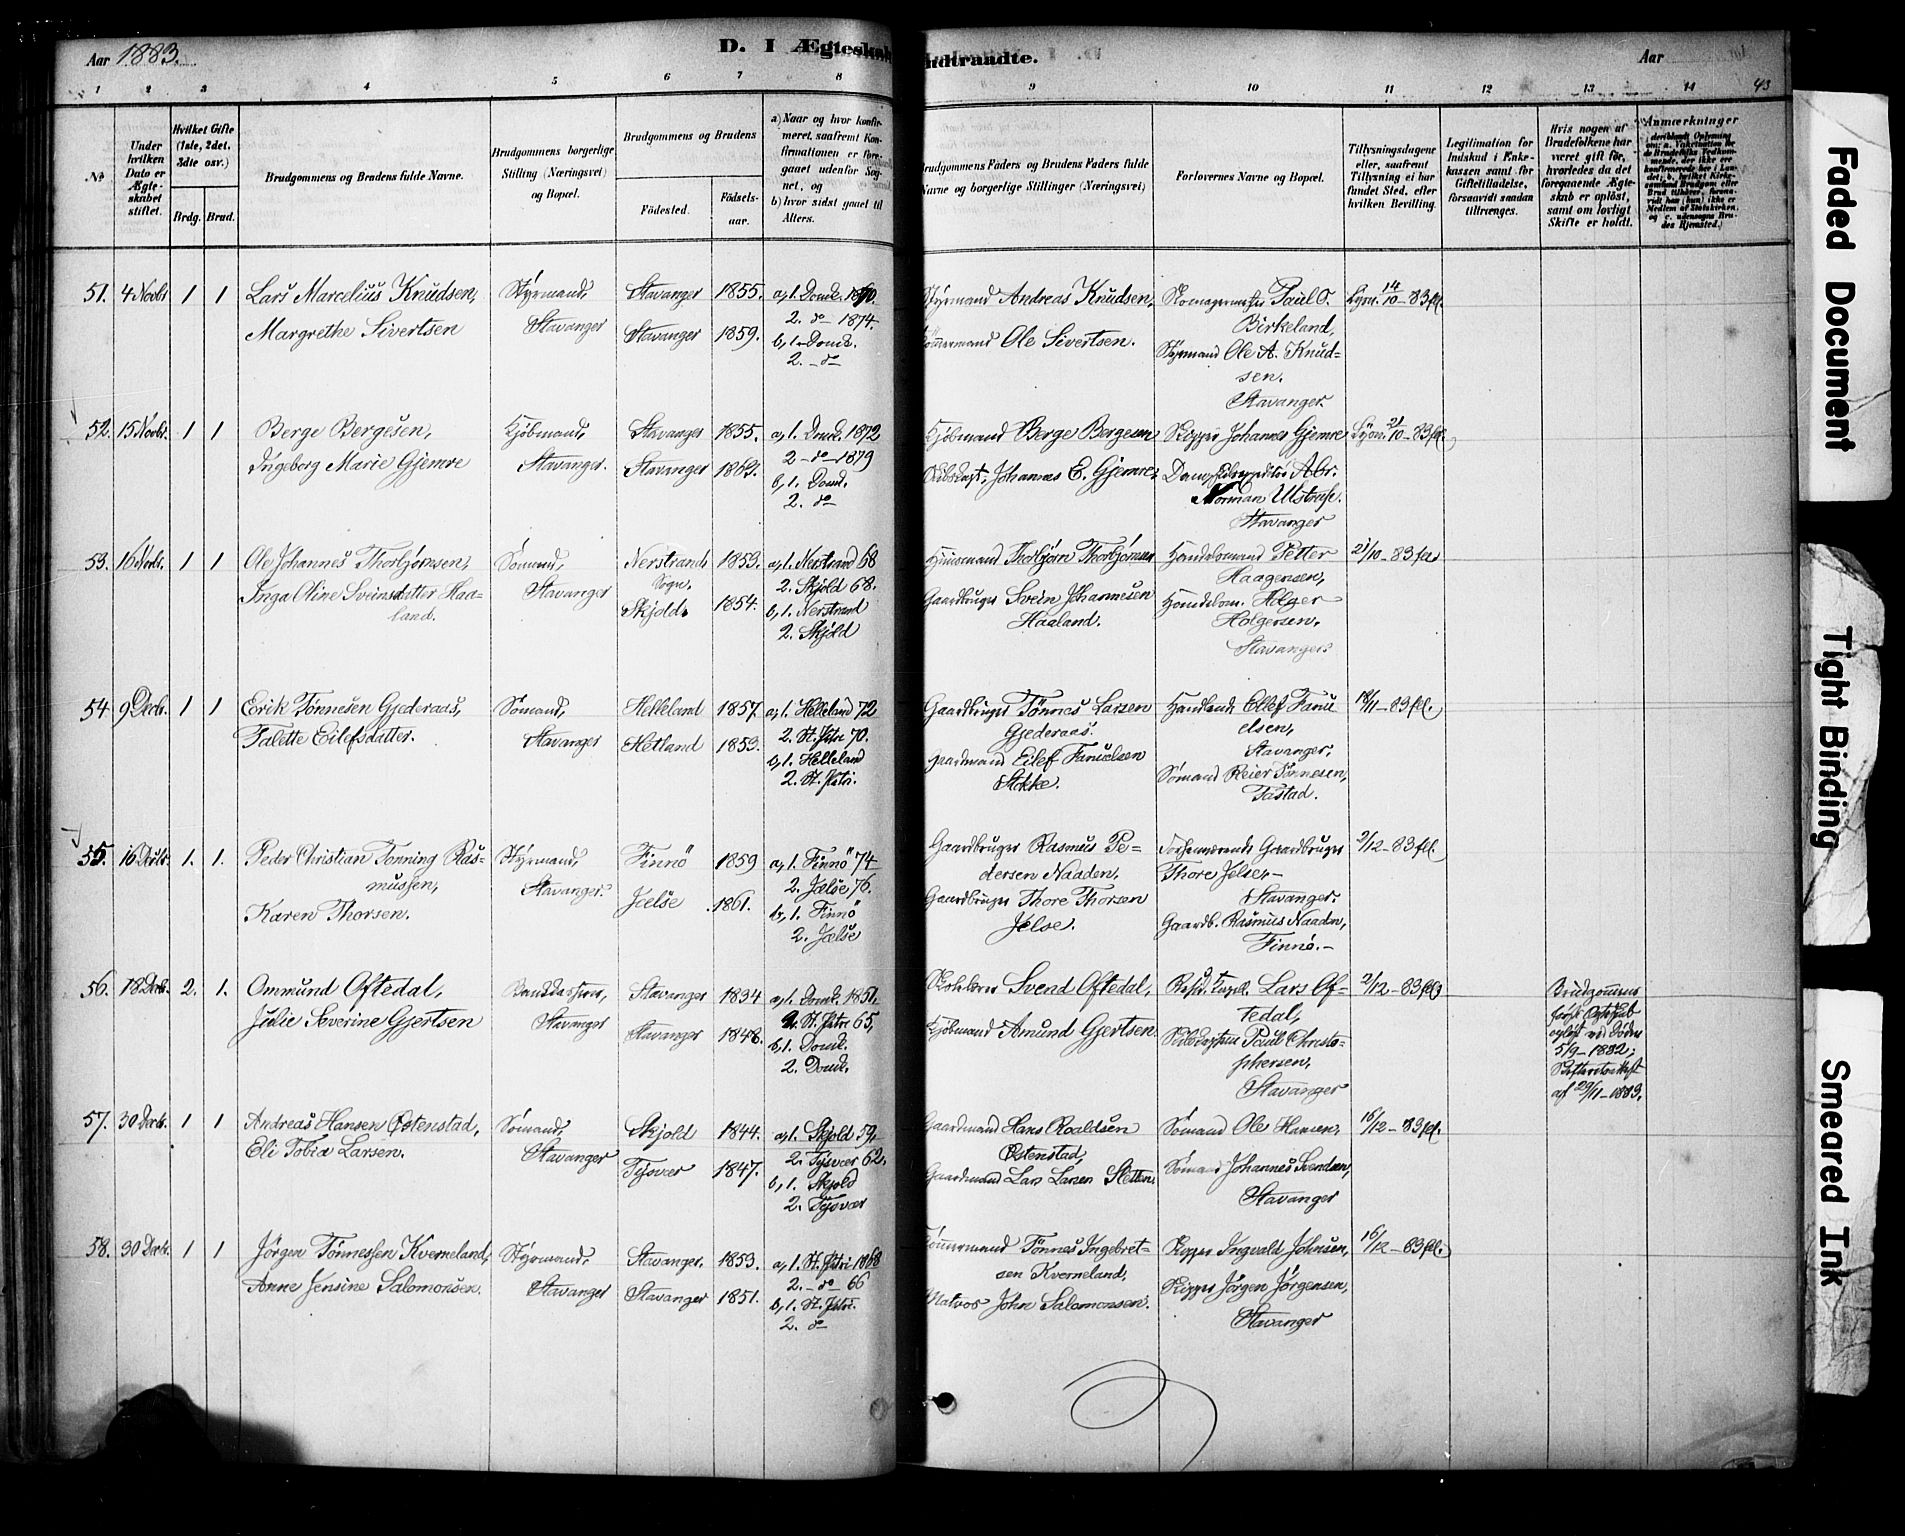 Aar 1883.
D. I Ægteskab
indtraadte.
Aar
1 2 3 4 5 6 7 8
9 10 11 12 13 14 43
No
Under hvilken Dato er Ægteskabet stiftet.
Hvilket Gifte (1ste, 2det, 3dte osv.)
Brdg. Brud.
Brudgommens og Brudens fulde Navne.
Brudgommens borgerlige Stilling (Næringsvei) og Bopæl.
Brudgommens og Brudens
Födested.
Födselsaar.
a) Naar og hvor konfirmeret, saafremt Konfirmationen er foregaaet udenfor Sognet, og
b) hvor sidst gaaet til Alters.
Brudgommens Faders og Brudens Faders fulde Navne og borgerlige Stillinger (Næringsvei)
Forlovernes Navne og Bopæl.
Tillysningsdagene eller, saafremt Tillysning ei har fundet Sted, efter hvilken Bevilling.
Legitimation for Indskud i Enkekassen samt for Giftetilladelse, forsaavidt saadan tiltrænges.
Hvis nogen af Brudefolkene har været gift för, hvorledes da det foregaaende Ægteskab er oplöst, samt om lovligt Skifte er holdt.
Anmærkninger
51. 4 Novbr. 1 1
Lars Marcelius Knudsen,
Margrethe Sivertsen
Styrmand,
Stavanger
Stavanger 1855.
Stavanger 1859.
a, 1. Domk. 1870.
2. do 1874.
b, 1. Domk.
2. do
Styrmand Andreas Knudsen,
Tömmermand Ole Sivertsen.
Skomagermester Paul O.
Birkeland,
Styrmand Ole A. Knudsen.
Stavanger.
Lysn. 14/10-83 fl.
52. 15 Novbr. 1 1
Berge Bergesen,
Ingeborg Marie Gjemre
Kjöbmand,
Stavanger.
Stavanger 1855.
Stavanger 1863.
a, 1. Domk. 1872
2 do 1879
b, 1. Domk.
2. do
Kjöbmand Berge Bergesen
Skibskapt. Johannes E. Gjemre.
Skipper Johannes Gjemre
Dampsk.expeditör Abr.
Norman Ulstrup.
Stavanger
Lysn. 21/10-83 fl.
53. 16 Novbr. 1 1
Ole Johannes Thorbjørnsen,
Inga Oline Sveinsdatter Haaland.
Sömand,
Stavanger
Nerstrands
Sogn. 1853.
Skjolds 1854.
a, 1. Nerstrand 68
2. Skjold 68.
b, 1. Nerstrand
2. Skjold
Huusmand Thorbjørn Thorbjørnsen
Gaardbruger Svein Johannesen
Haaland.
Handelsmand Petter
Haagensen,
Handelsm. Holger
Holgersen,
Stavanger.
21/10-83 fl.
54. 9 Decb. 1 1
Erik Tønnesen Gjederaas,
Talette Eilefsdatter.
Sömand,
Stavanger
Helleland 1857.
Hetland 1853.
a, 1. Helleland 72
2. St. Petri 70.
b, 1. Helleland
2. St. Petri.
Gaardbruger Tönnes Larsen
Gjederaas.
Gaardmand Eilef Fanuelsen
Stokke.
Handlende Ellef Fanuelsen,
Stavanger,
Sømand Reier Tönnesen,
Tastad.
18/11-83 fl.
55. 16 Decbr. 1. 1.
Peder Christian Tonning Rasmussen,
Karen Thorsen.
Styrmand,
Stavanger.
Finnö 1859
Jælse 1861.
a, 1. Finnö 74
2. Jælse 76.
b, 1. Finnö
2. Jælse
Gaardbruger Rasmus Pedersen Naaden,
Gaardbruger Thore Thorsen
Jelse.
Forhenværende Gaardbruger
Thore Jelse,
Stavanger.
Gaardb. Rasmus Naaden,
Finnö.
2/12-83 fl.
56. 18 Decb. 2. 1.
Ommund Oftedal,
Julie Severine Gjertsen
Stavanger
Stavanger 1834
Stavanger 1848.
a, 1. Domk. 1851.
2. St. Petri 65,
b, 1. Domk.
2. Domk.
Svend Oftedal,
Kjöbmand Amund Gjertsen
Resid. kapel. Lars Oftedal,
Paul Christophersen,
Stavanger
2/12-83 fl.
Brudgommens
forr. Ægteskab
oplöst ved Döden
5/9-1882;
Skifteretsattest
af 29/11-1883.
57. 30 Decb. 1 1
Andreas Hansen Østenstad,
Eli Tobia Larsen.
Sömand,
Stavanger
Skjold 1844.
Tysvær 1847.
a, 1. Skjold 59,
2. Tysvær 62.
b, 1. Skjold
2. Tysvær
Gaardmand Hans Roaldsen
Østenstad,
Gaardmand Lars Larsen Sletten.
Sömand Ole Hansen,
Sömand Johannes Svendsen,
Stavanger
16/12-83 fl.
58. 30 Decb. 1 1
Jørgen Tønnessen Kverneland,
Anne Jensine Salomonsen.
Styrmand,
Stavanger
Stavanger. 1853.
Stavanger 1851.
a, 1. St. Petri 1868
2. do 66
b, 1. St. Petri.
2. do
Tömmermand Tönnes Ingebretsen Kverneland,
Matros John Salomonsen.
Skipper Ingvald Johnsen,
Skipper Jörgen Jörgensen,
Stavanger
16/12-83 fl.
Faded Document
Tight Binding
Smeared Ink